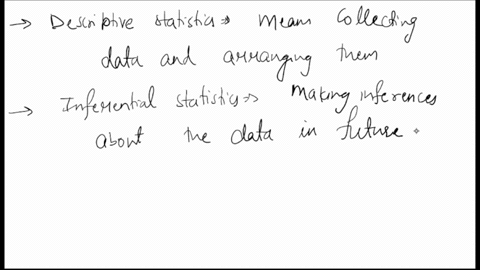 → Descriptive statistics → Mean Collecting
data and arranging them
→ Inferential statistics → Making inferences
about the data in future.